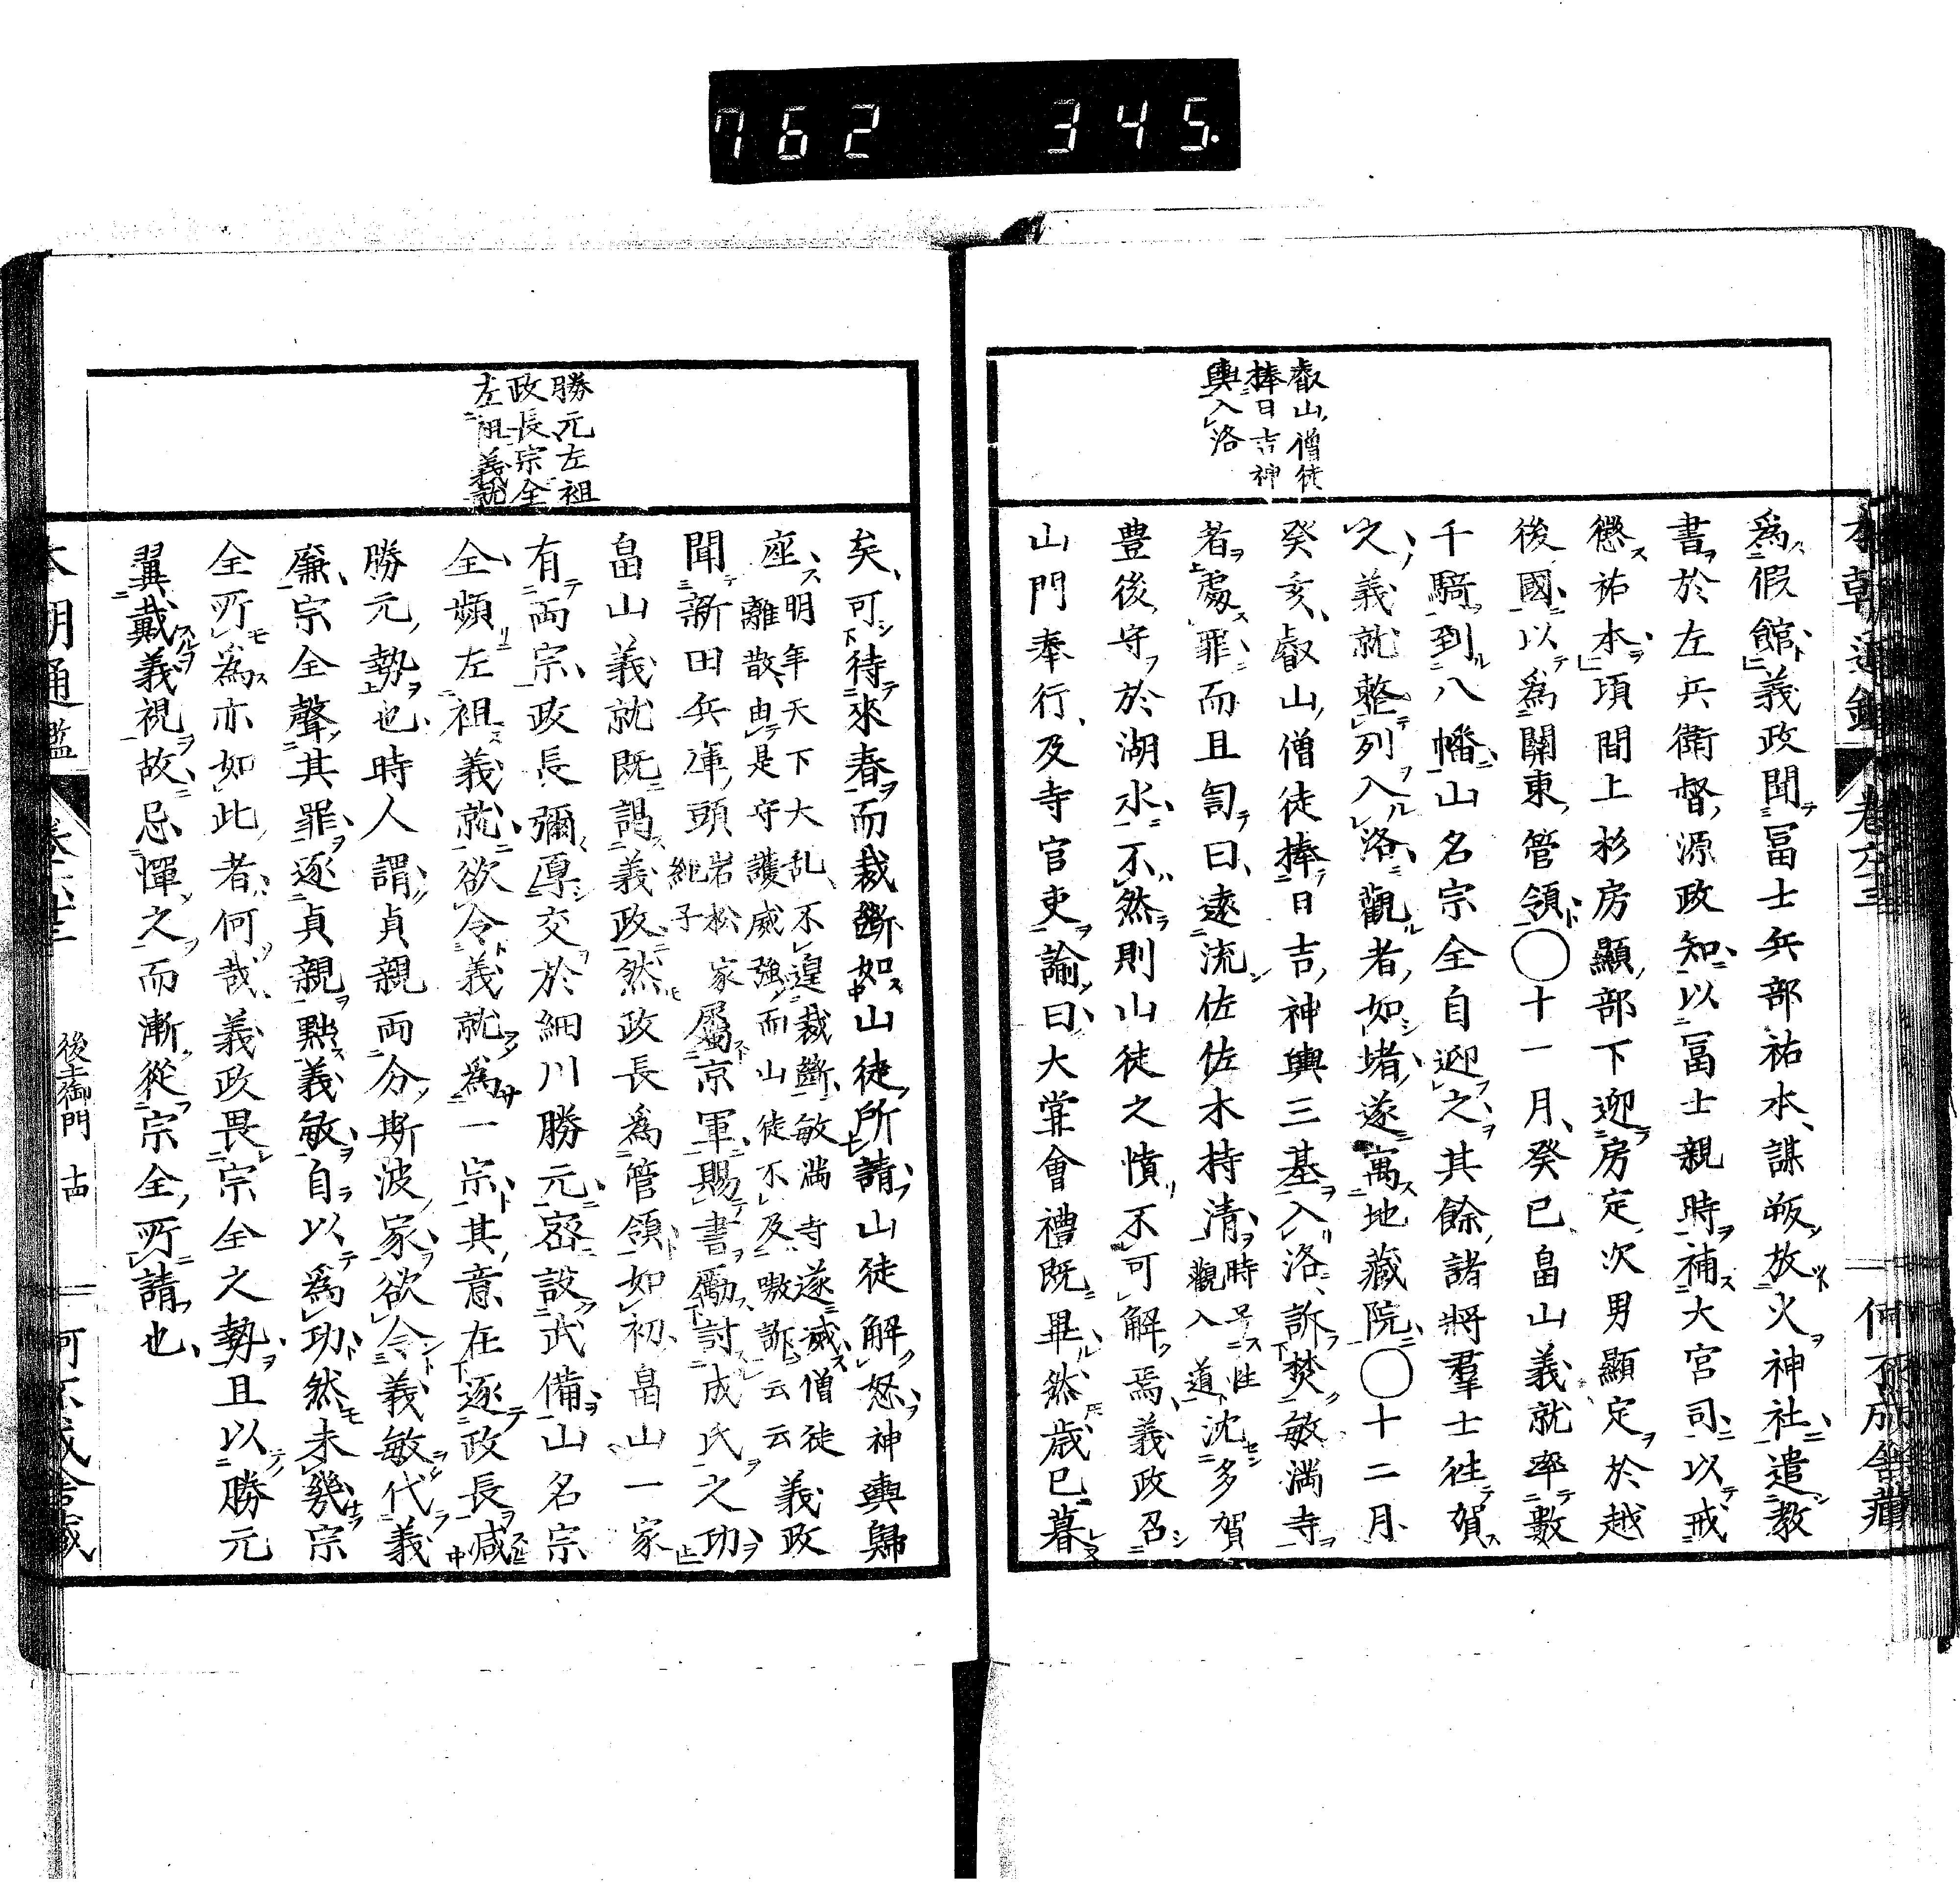 762 345.
本朝通鑑 卷六十三 何不成舎蔵
叡山僧徒
捧日吉神
輿入洛
為假館義政聞冨士兵部祐本謀叛放火神社遣教
書於左兵衛督源政知以冨士親時補大宮司以戒
懲祐本頃間上杉房顯部下迎房定次男顯定於越
後國以為關東管領〇十一月癸巳畠山義就率數
千騎到八幡山名宗全自迎之其餘諸將羣士徃賀
之義就整列入洛觀者如堵遂寓地藏院〇十二月
癸亥叡山僧徒捧日吉神輿三基入洛訴焚敏満寺
者處罪而且訇曰遠流佐佐木持清時号性觀入道沈多賀
豊後守於湖水不然則山徒之憤不可解焉義政召
山門奉行及寺官吏諭曰大甞會禮既畢然歳已暮
勝元左袒
政長宗全
左袒義就
矣可待來春而裁斷如山徒所請山徒解怒神輿歸
座明年天下大乱不遑裁斷敏満寺遂滅僧徒離散由是守護威強而山徒不及嗷訴云云義政
聞新田兵庫頭岩松家純子屬京軍賜書勵討成氏之功
畠山義就既謁義政然政長為管領如初畠山一家
有両宗政長彌厚交於細川勝元密設武備山名宗
全頻左袒義就欲令義就為一宗其意在逐政長減
勝元勢也時人謂貞親両分斯波家欲令義敏代義
廉宗全聲其罪逐貞親黜義敏自以為功然未幾宗
全所為亦如此者何哉義政畏宗全之勢且以勝元
翼戴義視故忌憚之而漸從宗全所請也
本朝通鑑 卷六十三 後土御門 十四 何不成舎蔵